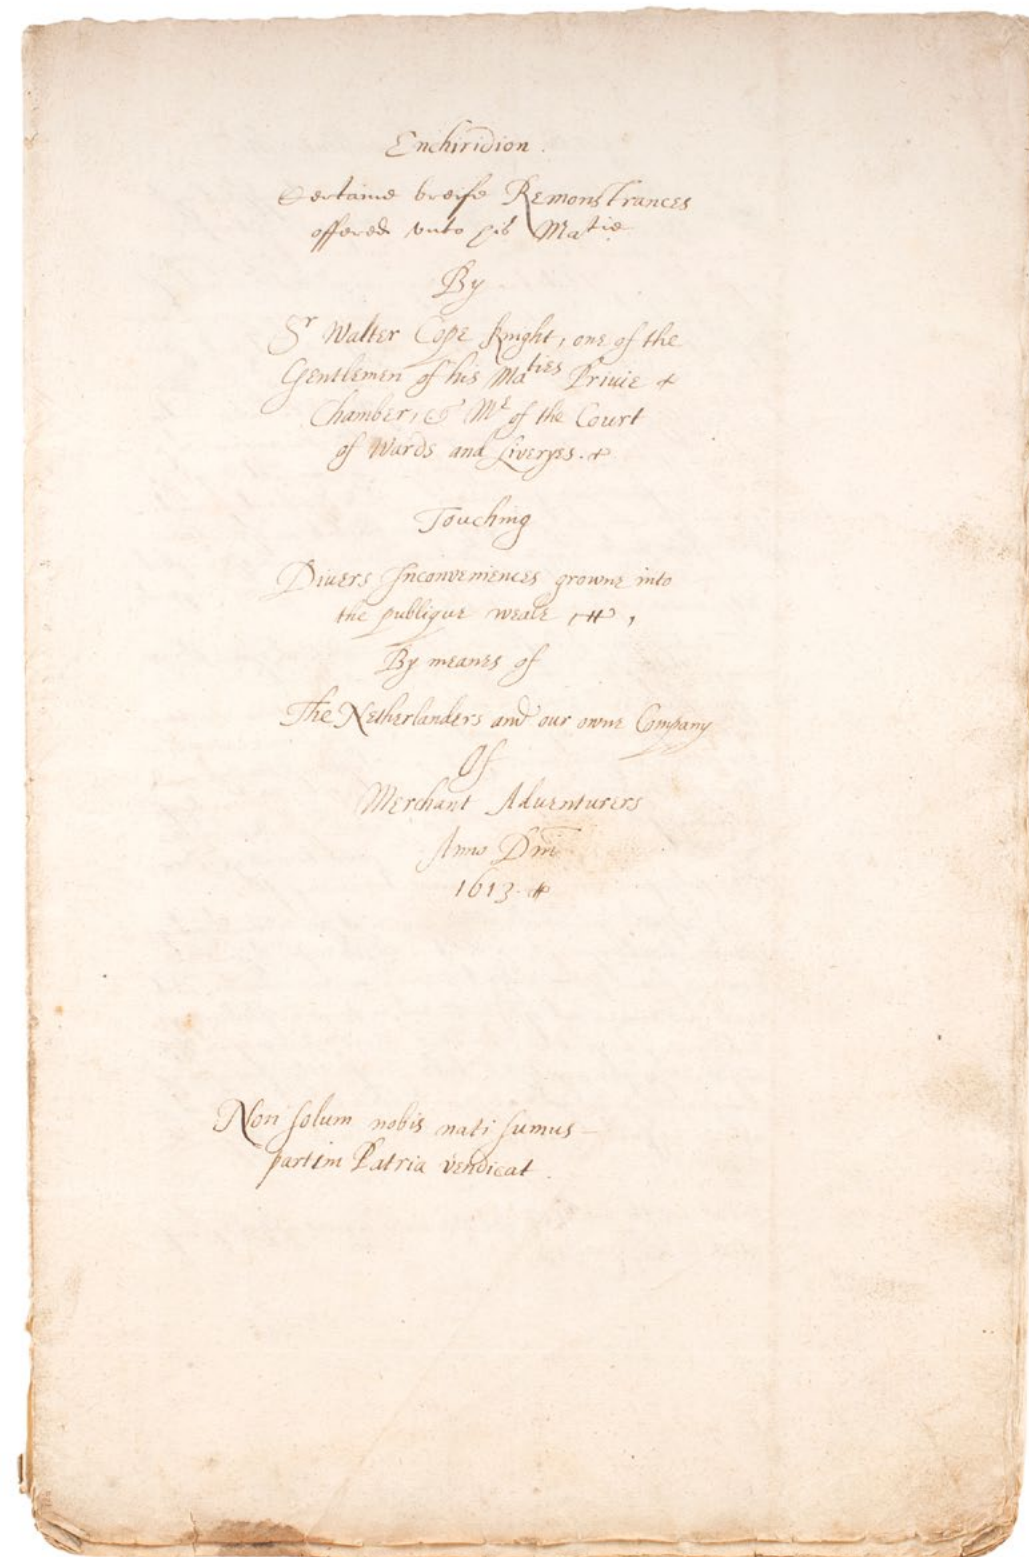 Enchiridion.
Certaine breife Remonstrances
offered vnto his Matie
By
Sr Walter Cope knight, one of the
Gentlemen of his Maties Privie
Chamber, & Mr of the Court
of Wards and Liveryes.
Touching
Divers Inconveniences growne into
the publique weale,
By meanes of
The Netherlanders and our owne Company
Of
Merchant Adventurers
Anno Dni
1613.
Non solum nobis nati sumus
partim Patria vendicat.